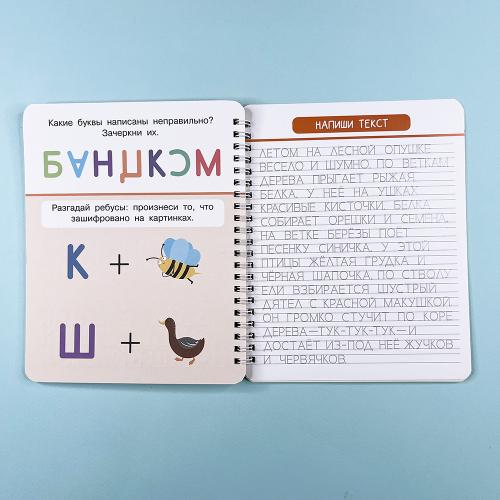 Какие буквы написаны неправильно?
Зачеркни их.
БАНЦКСМ
Разгадай ребусы: произнеси то, что
зашифровано на картинках.
К +
Ш +
НАПИШИ ТЕКСТ
ЛЕТОМ НА ЛЕСНОЙ ОПУШКЕ
ВЕСЕЛО И ШУМНО. ПО ВЕТКАМ
ДЕРЕВА ПРЫГАЕТ РЫЖАЯ
БЕЛКА. У НЕЁ НА УШКАХ
КРАСИВЫЕ КИСТОЧКИ. БЕЛКА
СОБИРАЕТ ОРЕШКИ И СЕМЕНА.
НА ВЕТКЕ БЕРЁЗЫ ПОЁТ
ПЕСЕНКУ СИНИЧКА. У ЭТОЙ
ПТИЦЫ ЖЁЛТАЯ ГРУДКА И
ЧЁРНАЯ ШАПОЧКА. ПО СТВОЛУ
ЕЛИ ВЗБИРАЕТСЯ ШУСТРЫЙ
ДЯТЕЛ С КРАСНОЙ МАКУШКОЙ.
ОН ГРОМКО СТУЧИТ ПО КОРЕ
ДЕРЕВА—ТУК-ТУК-ТУК—И
ДОСТАЁТ ИЗ-ПОД НЕЁ ЖУЧКОВ
И ЧЕРВЯЧКОВ.